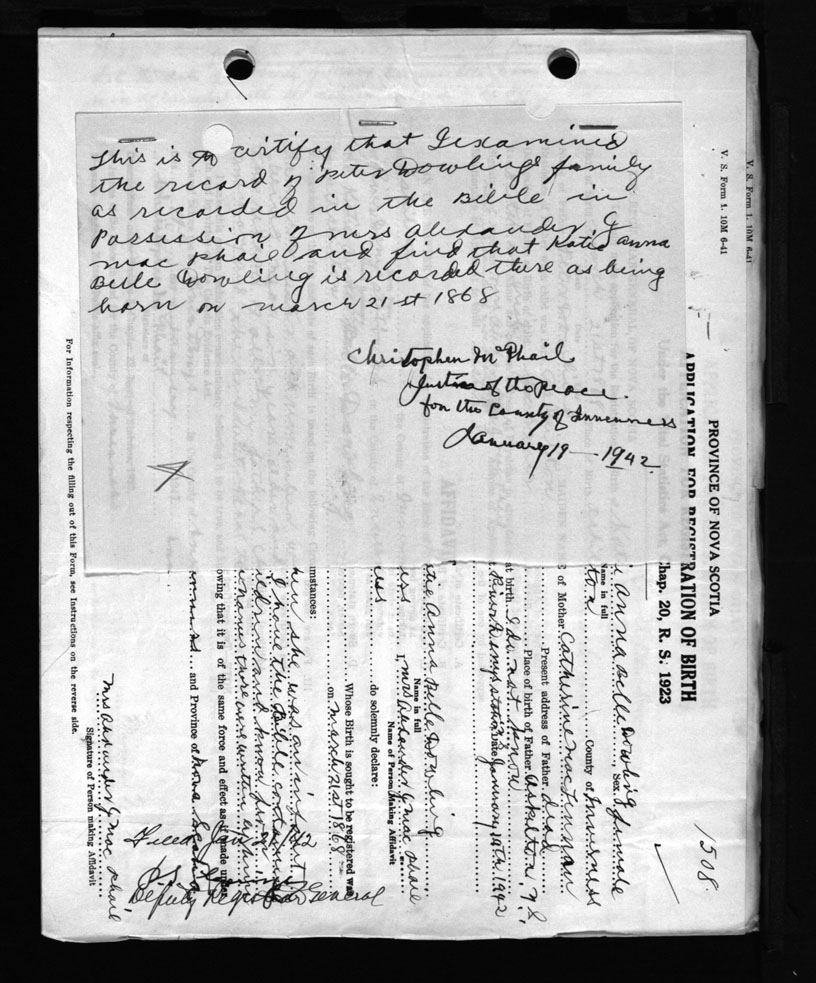 This is to certify that I examined
the record of Peter Dowlings family
as recorded in the Bible in
Possession of mrs Alexander G
mac Phail and find that Katie anna
Belle Dowling is recorded there as being
born on march 21st 1868
Christopher McPhail
Justice of the peace
for the County of Inverness
January 19 - 1942
1508.
PROVINCE OF NOVA SCOTIA
APPLICATION FOR REGISTRATION OF BIRTH
Chap. 20, R. S. 1923
anna Belle Dowling, Sex female
Name in full
County of Inverness
of Mother Catherine MacLennan
Present address of Father dead
Place of birth of Father Askilton, N S,
at birth I do not know
Date January 19th, 1942
Anna Belle Dowling
Name in full
I, Mrs Alexander G MacPhail
Name of Person Making Affidavit
do solemnly declare:
Whose Birth is sought to be registered was
on March 21st 1868
umstances:
when she was an infant
I have the Bible containing
children and know
names there were written
owing that it is of the same force and effect as if made under
and Province of Nova Scotia
Mrs Alexander G MacPhail
Signature of Person making Affidavit
Filed Jan
Deputy Registrar General
For Information respecting the filling out of this Form, see Instructions on the reverse side.
V. S. Form 1. 10M 6-41
V. S. Form 1. 10M 6-41